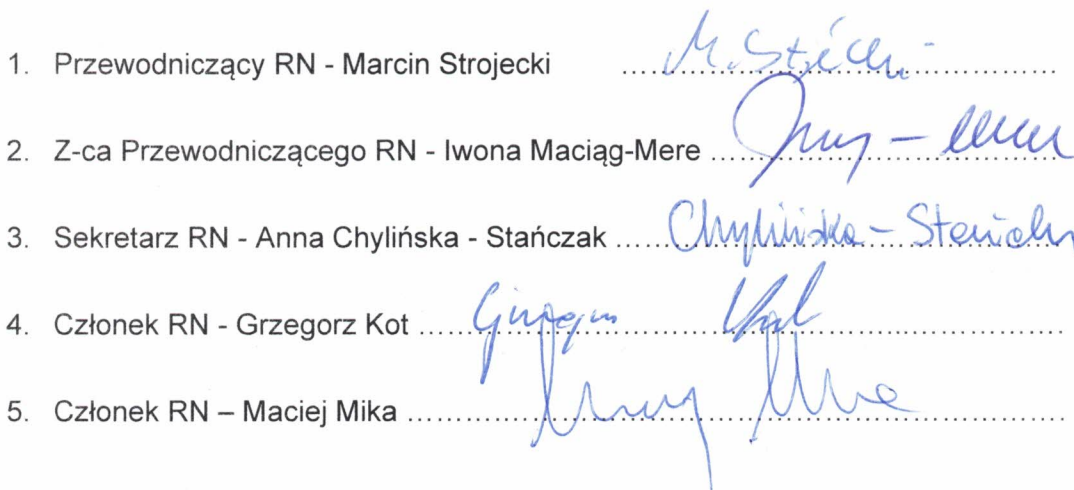 1. Przewodniczący RN - Marcin Strojecki ........................................ M. Strécki
2. Z-ca Przewodniczącego RN - Iwona Maciąg-Mere ........................................
3. Sekretarz RN - Anna Chylińska - Stańczak ........................................ Chylińska - Stańcz
4. Członek RN - Grzegorz Kot ........................................ Grzegorz Kot
5. Członek RN – Maciej Mika ........................................